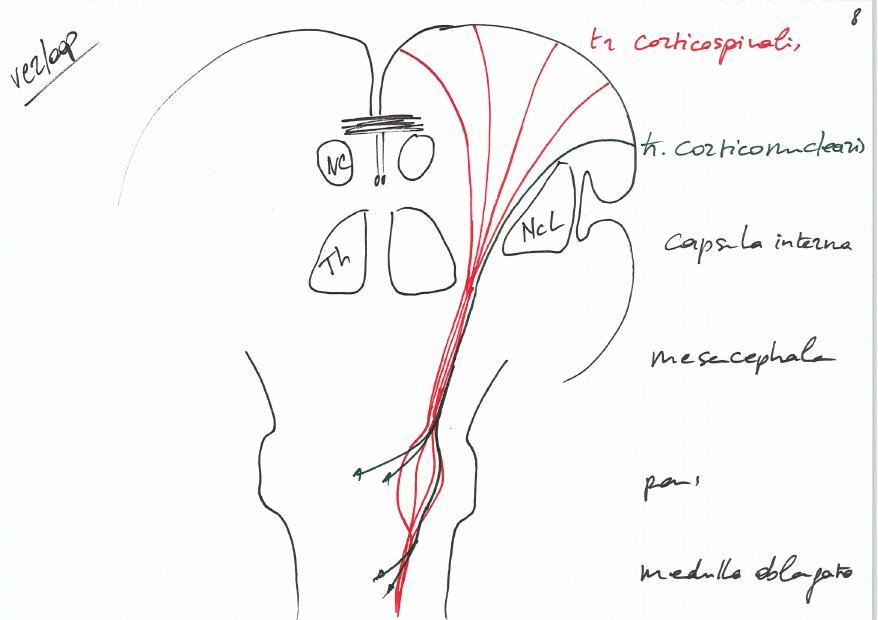 8
verloop
tr corticospinalis
tr. corticonuclearis
NC
NcL
Th
capsula interna
mesencephalon
pons
medulla oblongata